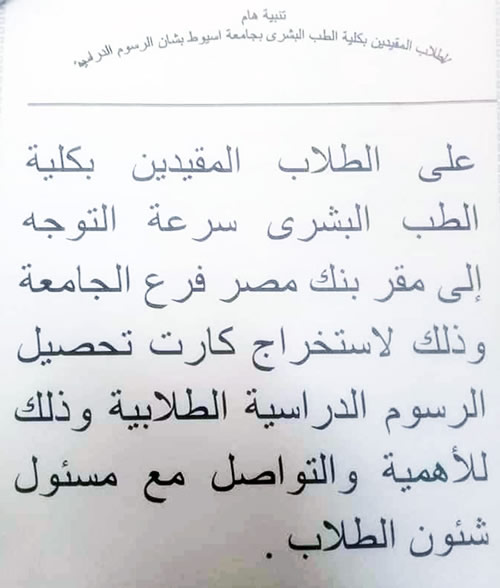 تنبية هام
للطلاب المقيدين بكلية الطب البشرى بجامعة اسيوط بشان الرسوم الدراسية
على الطلاب المقيدين بكلية
الطب البشرى سرعة التوجه
إلى مقر بنك مصر فرع الجامعة
وذلك لاستخراج كارت تحصيل
الرسوم الدراسية الطلابية وذلك
للأهمية والتواصل مع مسئول
شئون الطلاب .